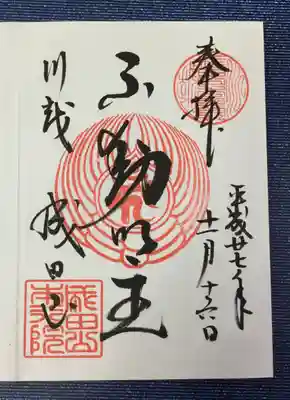 奉拝
平成廿七年
十一月十六日
不動明王
川越 成田山
成田山
本行院